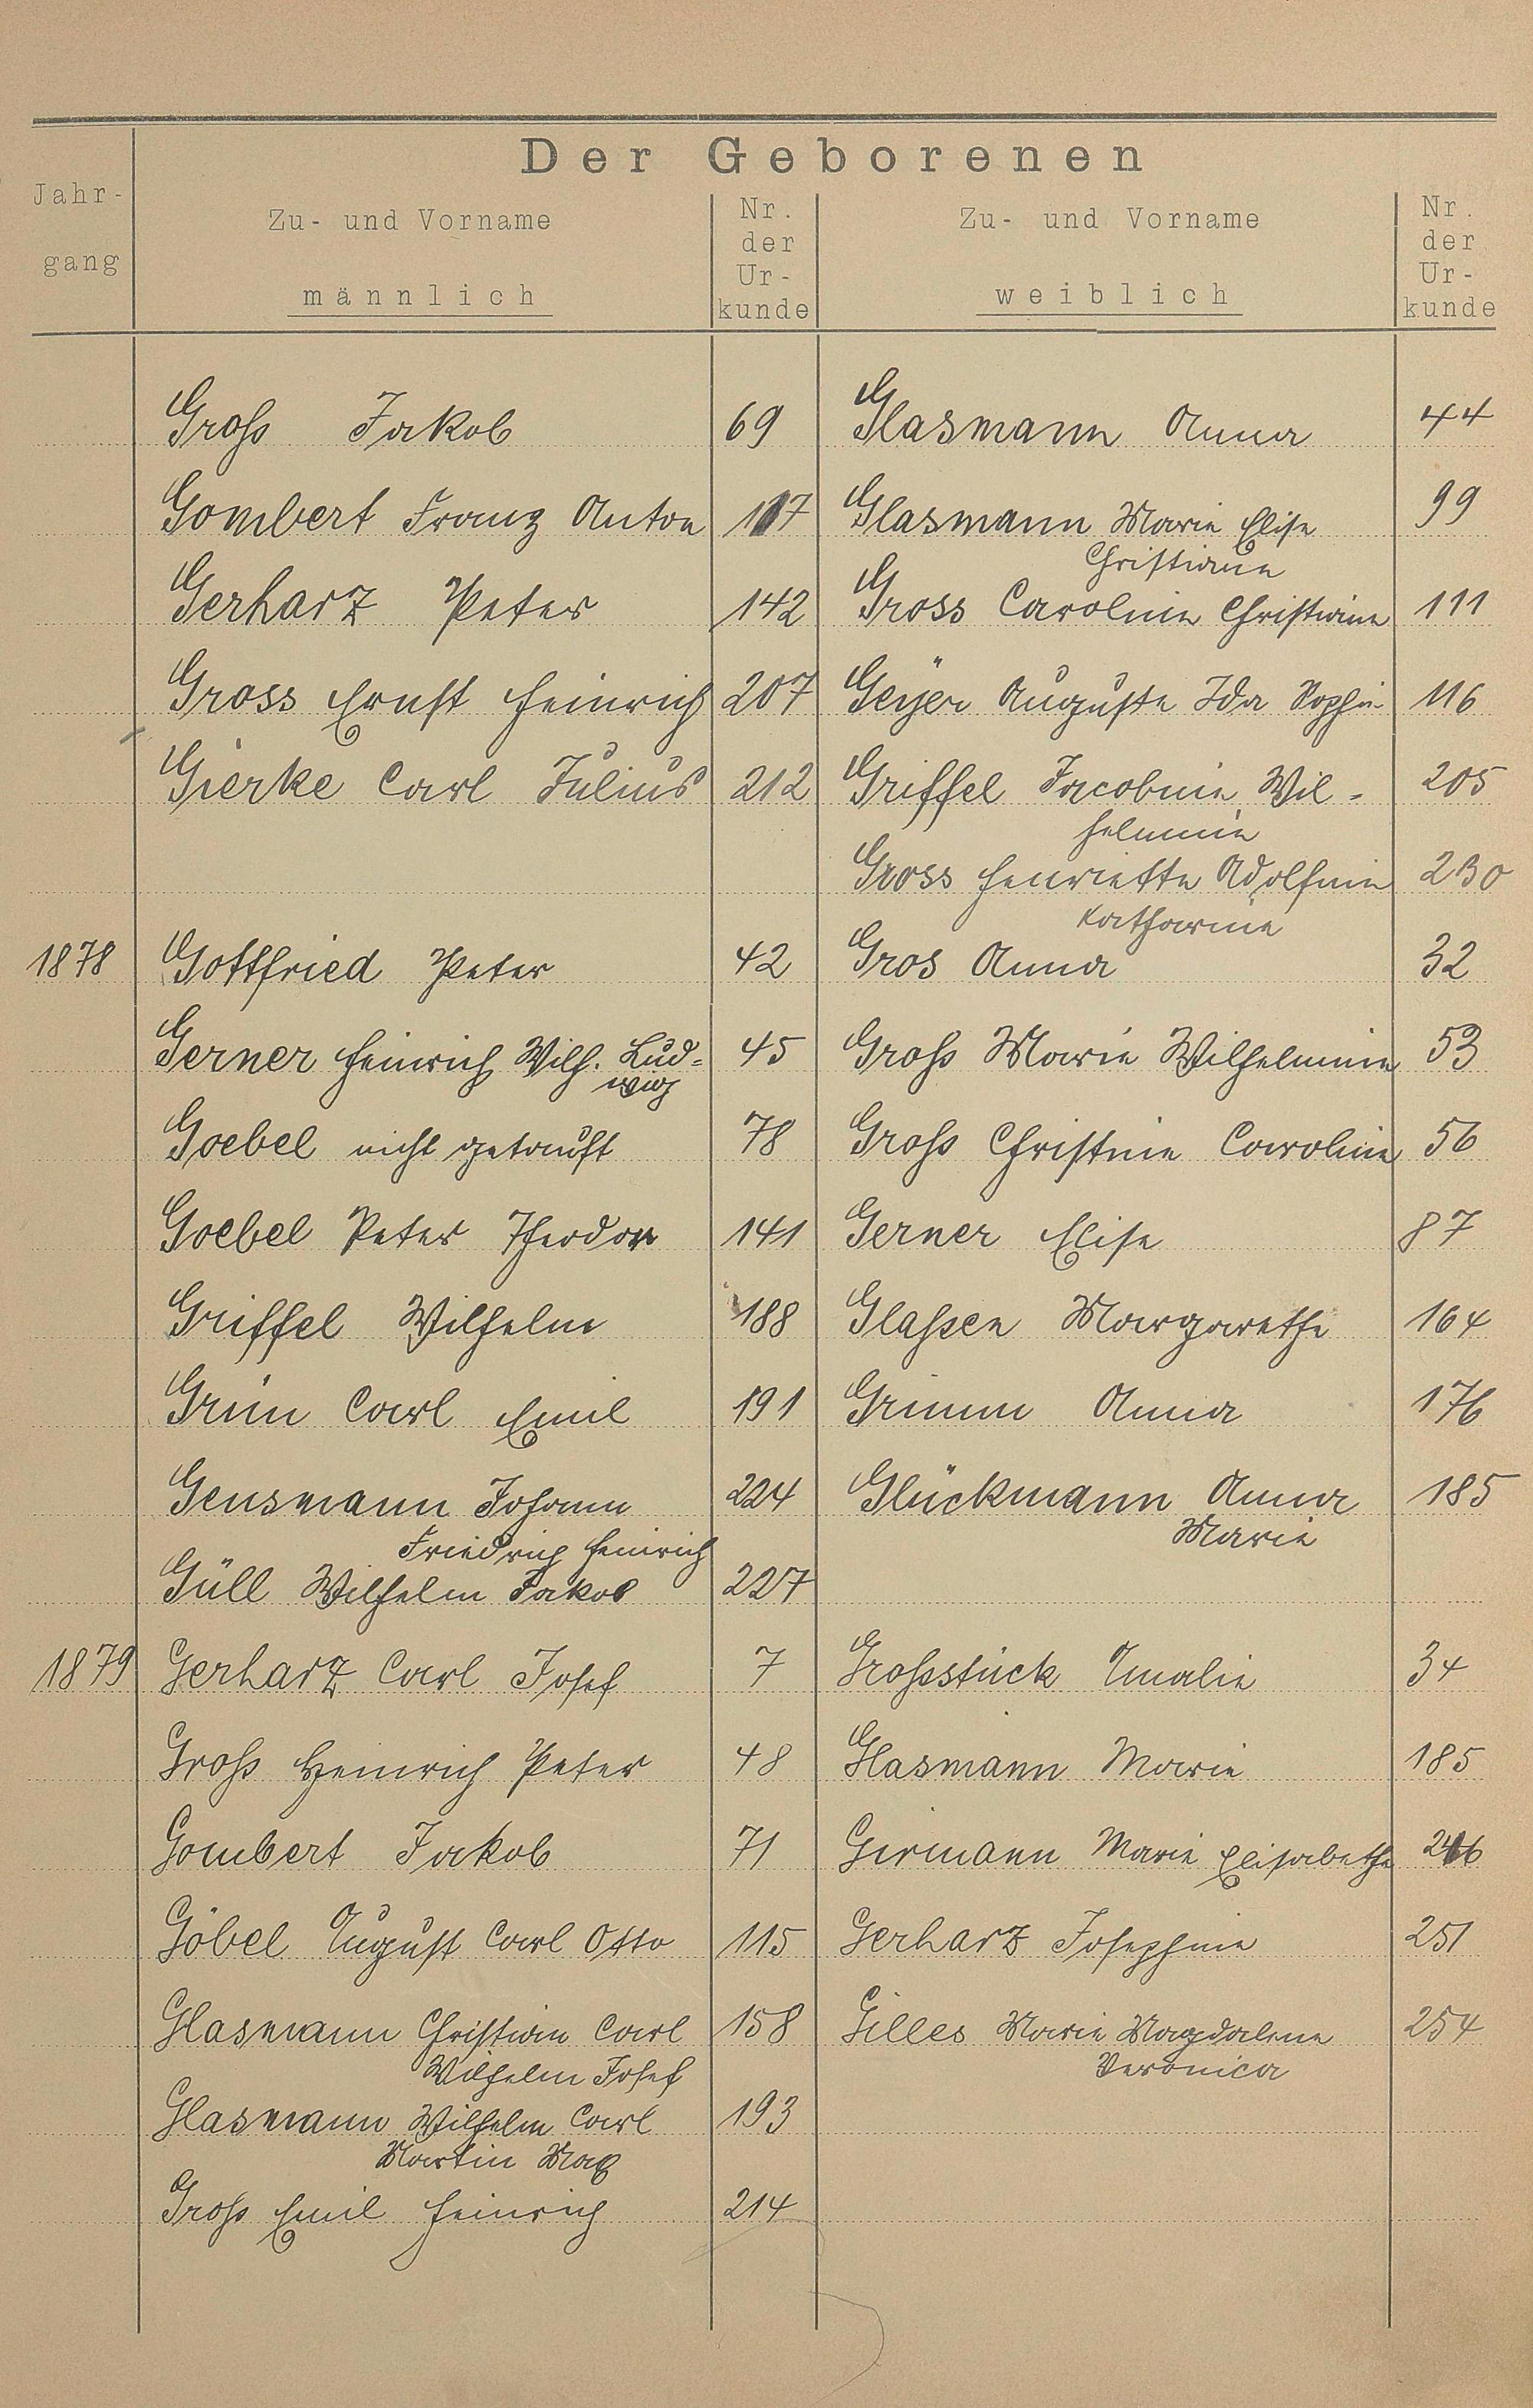 Der Geborenen
Jahr-
gang
Zu- und Vorname
männlich
Nr.
der
Ur-
kunde
Zu- und Vorname
weiblich
Nr.
der
Ur-
kunde
Groß Jakob 69 Glasmann Anna 44
Gombert Franz Anton 117 Glasmann Marie Elise 99
Christiane
Gerharz Peter 142 Gross Caroline Christiane 111
Gross Ernst Heinrich 207 Geÿer Auguste Ida Sophie 116
Gierke Carl Julius 212 Griffel Jacobine Wil- 205
helmine
Gross Henriette Adolfine 230
Katharine
1878 Gottfried Peter 42 Gros Anna 32
Gerner Heinrich Wilh. Lud= 45 Groß Marie Wilhelmine 53
wig
Goebel nicht getauft 78 Groß Christine Caroline 56
Goebel Peter Theodor 141 Gerner Elise 87
Griffel Wilhelm 188 Glaßen Margarethe 164
Grün Carl Emil 191 Grimm Anna 176
Gensmann Johann 224 Glückmann Anna 185
Friedrich Heinrich Marie
Güll Wilhelm Jakob 227
1879 Gerharz Carl Josef 7 Großstück Amalie 34
Groß Heinrich Peter 48 Glasmann Marie 185
Gombert Jakob 71 Girmann Marie Elisabethe
Göbel August Carl Otto 115 Gerharz Josephine 251
Glasmann Christian Carl 158 Gilles Marie Magdalene 254
Wilhelm Josef Veronica
Glasmann Wilhelm Carl 193
Martin Max
Groß Emil Heinrich 214